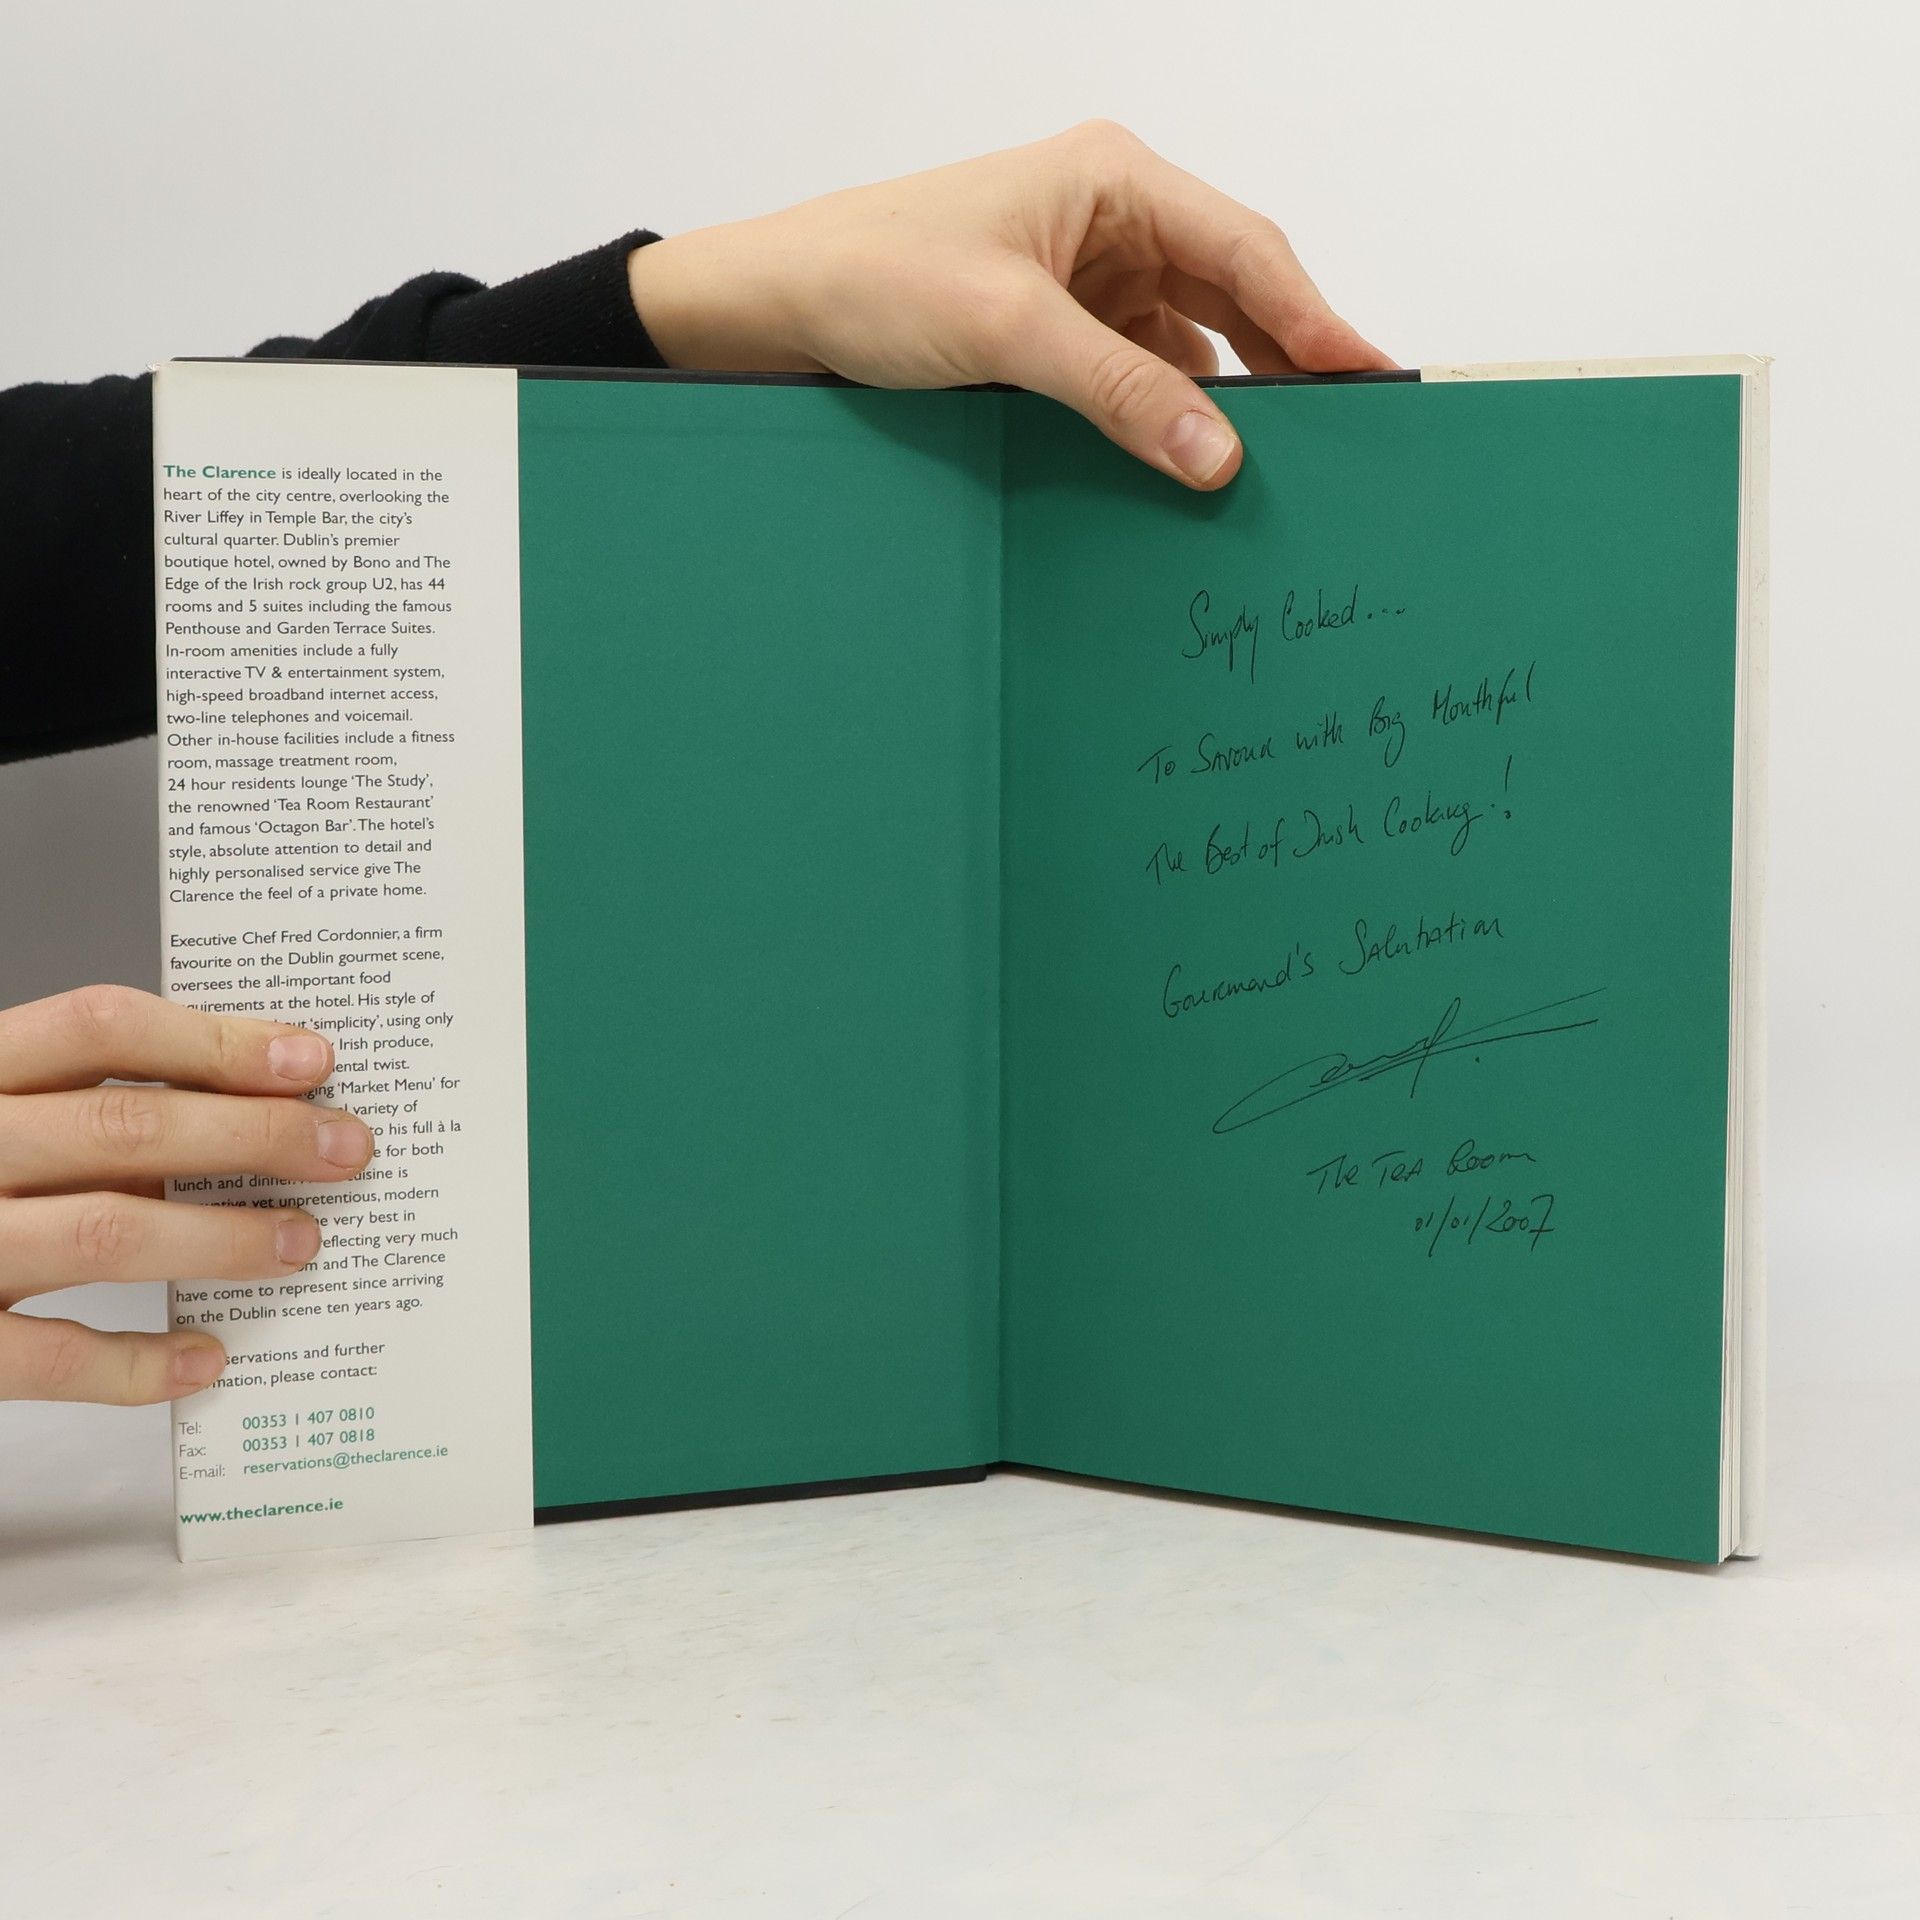 The Clarence is ideally located in the
heart of the city centre, overlooking the
River Liffey in Temple Bar, the city's
cultural quarter. Dublin's premier
boutique hotel, owned by Bono and The
Edge of the Irish rock group U2, has 44
rooms and 5 suites including the famous
Penthouse and Garden Terrace Suites.
In-room amenities include a fully
interactive TV & entertainment system,
high-speed broadband internet access,
two-line telephones and voicemail.
Other in-house facilities include a fitness
room, massage treatment room,
24 hour residents lounge 'The Study',
the renowned 'Tea Room Restaurant'
and famous 'Octagon Bar'. The hotel's
style, absolute attention to detail and
highly personalised service give The
Clarence the feel of a private home.
Executive Chef Fred Cordonnier, a firm
favourite on the Dublin gourmet scene,
oversees the all-important food
at the hotel. His style of
'simplicity', using only
Irish produce,
twist.
'Market Menu' for
variety of
to his full à la
for both
lunch and is
yet unpretentious, modern
very best in
reflecting very much
and The Clarence
have come to represent since arriving
on the Dublin scene ten years ago.
and further
please contact:
Tel: 00353 1 407 0810
Fax: 00353 1 407 0818
E-mail: reservations@theclarence.ie
www.theclarence.ie
Simply Cooked...
To Savour with Big Mouthful
The Best of Irish Cooking.!
Gourmand's Salutation
The Tea Room
01/01/2007